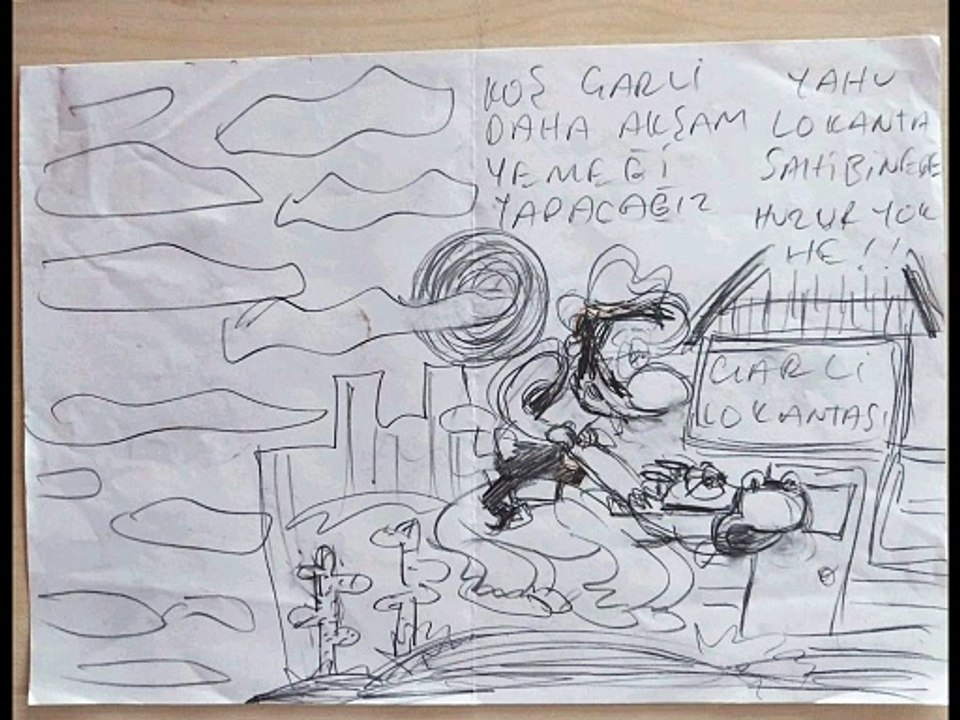 KOŞ GARLİ
DAHA AKŞAM
YEMEĞİ
YAPACAĞIZ
YAHU
LOKANTA
SAHİBİNEDE
HUZUR YOK
HE !!
GARLİ
LOKANTASI